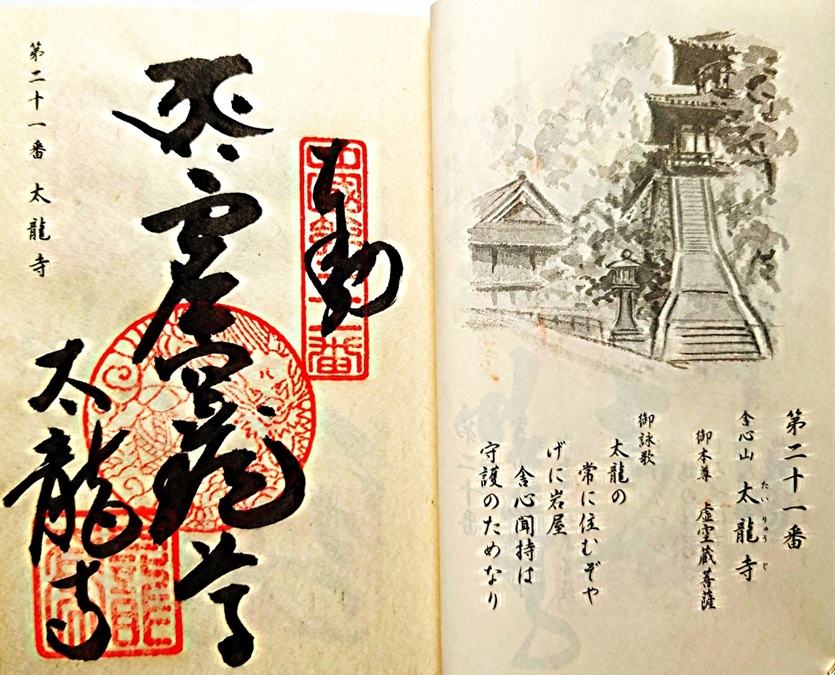 第二十一番
舎心山 太龍寺
たいりゅうじ
御本尊 虚空蔵菩薩
御詠歌
太龍の
常に住むぞや
げに岩屋
舎心聞持は
守護のためなり
四國第二十一番
虚空蔵尊
太龍寺
第二十一番 太龍寺